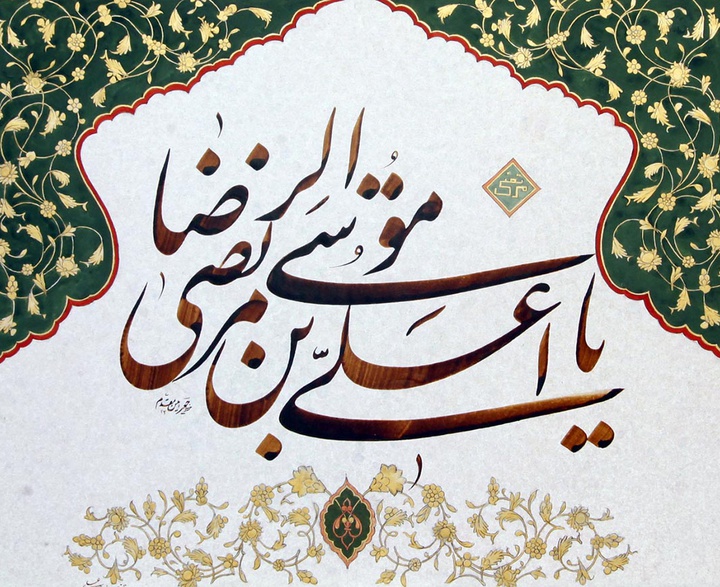 یا علی بن موسی الرضا
مرتضی